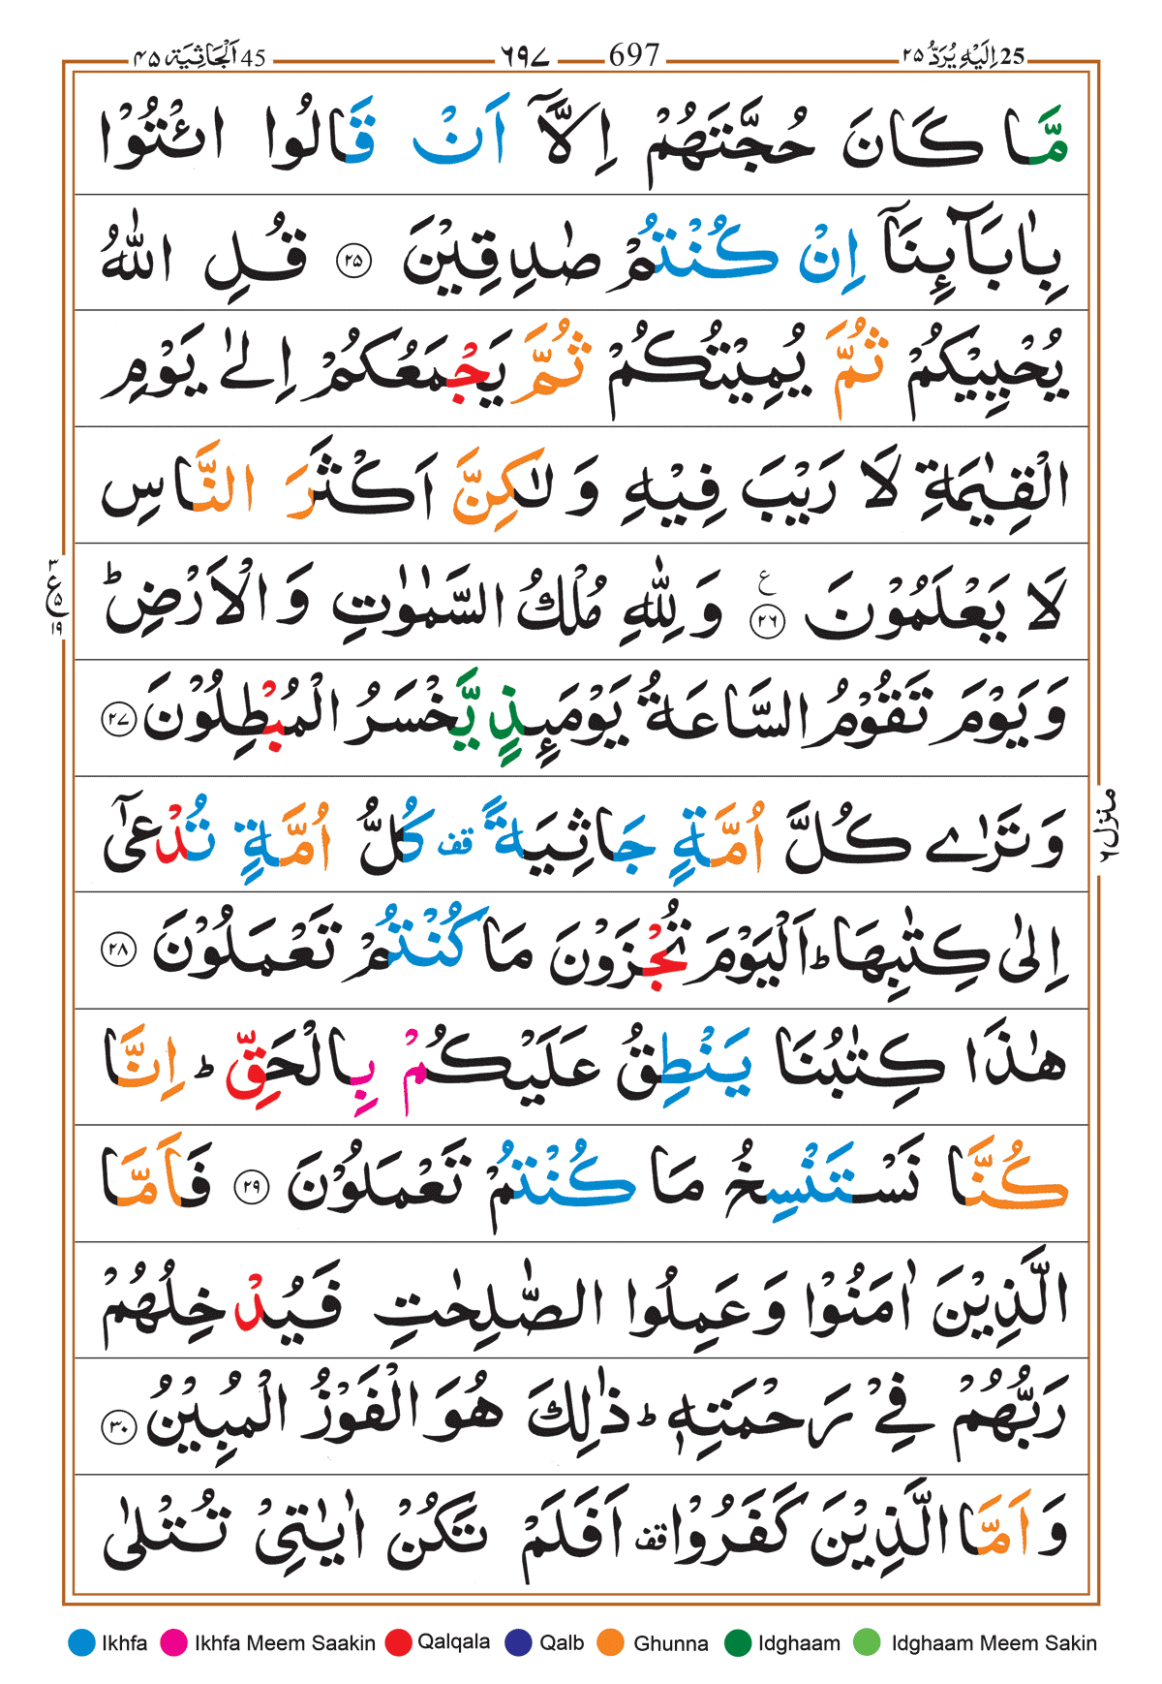 25 اِلَيْهِ يُرَدُّ ۲۵ 697 ۶۹۷ 45 اَلْجَاثِيَة ۴۵
مَّا كَانَ حُجَّتَهُمْ اِلَّاۤ اَنْ قَالُوا ائْتُوْا
بِاٰبَآىِٕنَاۤ اِنْ كُنْتُمْ صٰدِقِيْنَ ۲۵ قُلِ اللّٰهُ
يُحْيِيْكُمْ ثُمَّ يُمِيْتُكُمْ ثُمَّ يَجْمَعُكُمْ اِلٰى يَوْمِ
الْقِيٰمَةِ لَا رَيْبَ فِيْهِ وَ لٰكِنَّ اَكْثَرَ النَّاسِ
لَا يَعْلَمُوْنَ ۲۶ ع وَ لِلّٰهِ مُلْكُ السَّمٰوٰتِ وَ الْاَرْضِ ؕ
وَ يَوْمَ تَقُوْمُ السَّاعَةُ يَوْمَىِٕذٍ يَّخْسَرُ الْمُبْطِلُوْنَ ۲۷
وَ تَرٰى كُلَّ اُمَّةٍ جَاثِيَةً قف كُلُّ اُمَّةٍ تُدْعٰۤى
اِلٰى كِتٰبِهَا ؕ اَلْيَوْمَ تُجْزَوْنَ مَا كُنْتُمْ تَعْمَلُوْنَ ۲۸
هٰذَا كِتٰبُنَا يَنْطِقُ عَلَيْكُمْ بِالْحَقِّ ؕ اِنَّا
كُنَّا نَسْتَنْسِخُ مَا كُنْتُمْ تَعْمَلُوْنَ ۲۹ فَاَمَّا
الَّذِيْنَ اٰمَنُوْا وَ عَمِلُوا الصّٰلِحٰتِ فَيُدْخِلُهُمْ
رَبُّهُمْ فِيْ رَحْمَتِهٖ ؕ ذٰلِكَ هُوَ الْفَوْزُ الْمُبِيْنُ ۳۰
وَ اَمَّا الَّذِيْنَ كَفَرُوْا قف اَفَلَمْ تَكُنْ اٰيٰتِيْ تُتْلٰى
۳
ع ۵
۱۹
منزل ۶
Ikhfa Ikhfa Meem Saakin Qalqala Qalb Ghunna Idghaam Idghaam Meem Sakin